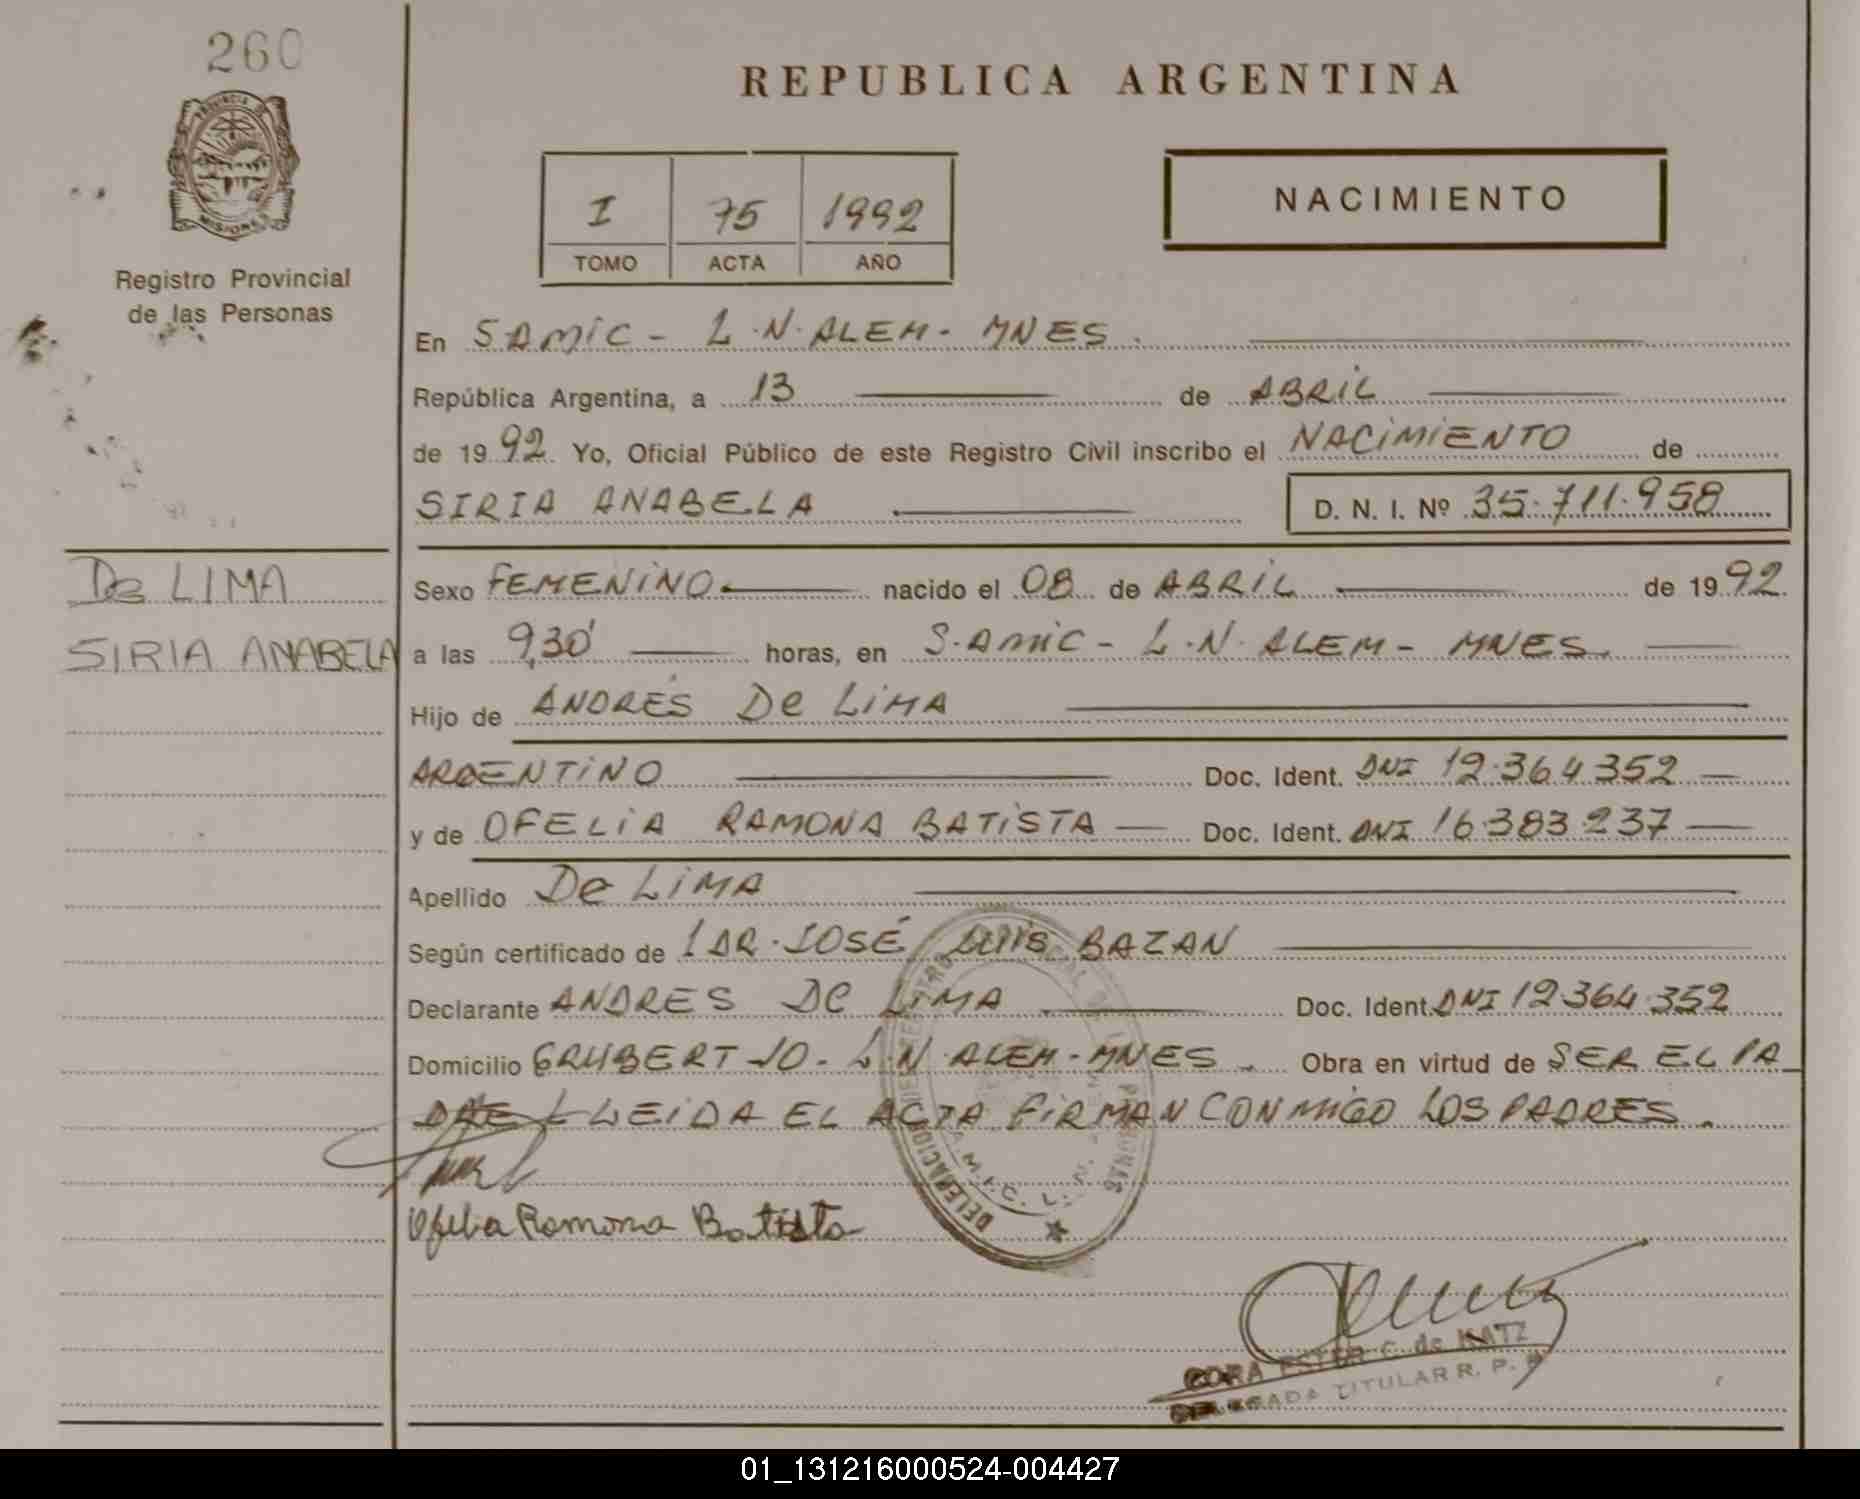 260
PROVINCIA DE
MISIONES
Registro Provincial
de las Personas
REPUBLICA ARGENTINA
I 75 1992
TOMO ACTA AÑO
NACIMIENTO
En SAMIC - L.N. ALEM - MNES.
República Argentina, a 13 de ABRIL
de 1992. Yo, Oficial Público de este Registro Civil inscribo el NACIMIENTO de
SIRIA ANABELA D. N. I. Nº 35.711.958
De LIMA
SIRIA ANABELA
Sexo FEMENINO nacido el 08 de ABRIL de 1992.
a las 9,30' horas, en S.AMIC - L.N. ALEM - MNES.
Hijo de ANDRÉS De LIMA
ARGENTINO Doc. Ident. DNI 12.364.352
y de OFELIA RAMONA BATISTA Doc. Ident. DNI 16.383.237
Apellido De LIMA
Según certificado de DR. JOSÉ LUIS BAZAN
Declarante ANDRES DE LIMA Doc. Ident. DNI 12.364.352
Domicilio GRUBERT 10 - L.N. ALEM - MNES. Obra en virtud de SER EL PA
DRE LEIDA EL ACTA FIRMAN CONMIGO LOS PADRES.
Ofelia Ramona Batista
CORA ESTER C. de KATZ
DELEGADA TITULAR R. P.
01_131216000524-004427